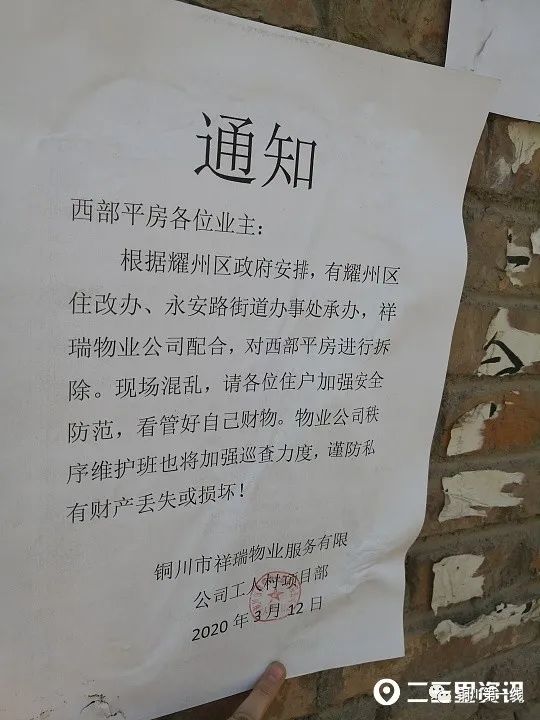 通知
西部平房各位业主:
根据耀州区政府安排,有耀州区
住改办、永安路街道办事处承办,祥
瑞物业公司配合,对西部平房进行拆
除。现场混乱,请各位住户加强安全
防范,看管好自己财物。物业公司秩
序维护班也将加强巡查力度,谨防私
有财产丢失或损坏!
铜川市祥瑞物业服务有限
公司工人村项目部
2020年3月12日
二百里资讯